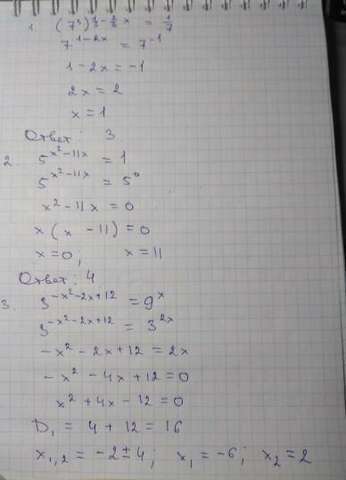 1. (7³)^{1/3 - 2/3 x} = 1/7
7^{1-2x} = 7^{-1}
1-2x = -1
2x = 2
x = 1
Ответ: 3
2. 5^{x²-11x} = 1
5^{x²-11x} = 5⁰
x² - 11x = 0
x(x - 11) = 0
x = 0; x = 11
Ответ: 4
3. 3^{-x²-2x+12} = 9^x
3^{-x²-2x+12} = 3^{2x}
-x² - 2x + 12 = 2x
-x² - 4x + 12 = 0
x² + 4x - 12 = 0
D₁ = 4 + 12 = 16
x₁,₂ = -2 ± 4; x₁ = -6; x₂ = 2